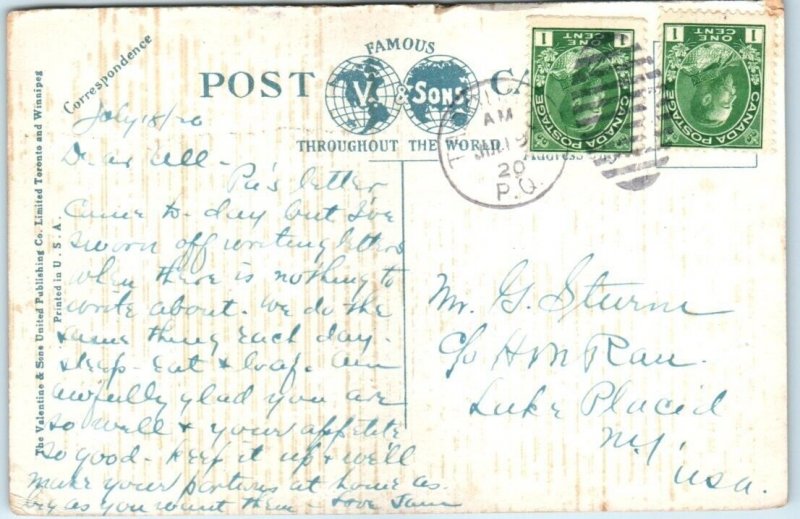 Correspondence
FAMOUS
POST CA
V. & SONS
THROUGHOUT THE WORLD
AM
JUL 19
20
P.Q.
1 ONE CENT 1
CANADA POSTAGE
1 ONE CENT 1
CANADA POSTAGE
The Valentine & Sons United Publishing Co. Limited Toronto and Winnipeg
Printed in U.S.A.
July 18/20
Dear All -
letter
came to-day but I've
sworn off writing letters
when there is nothing to
write about. We do the
same thing each day -
sleep - eat & loaf. Am
awfully glad you are
so well & your appetite
so good - keep it up & we'll
make your portions at home as
big as you want them - Love
Mr. G. Sturm
c/o H M Rau.
Lake Placid
N.Y.
USA.